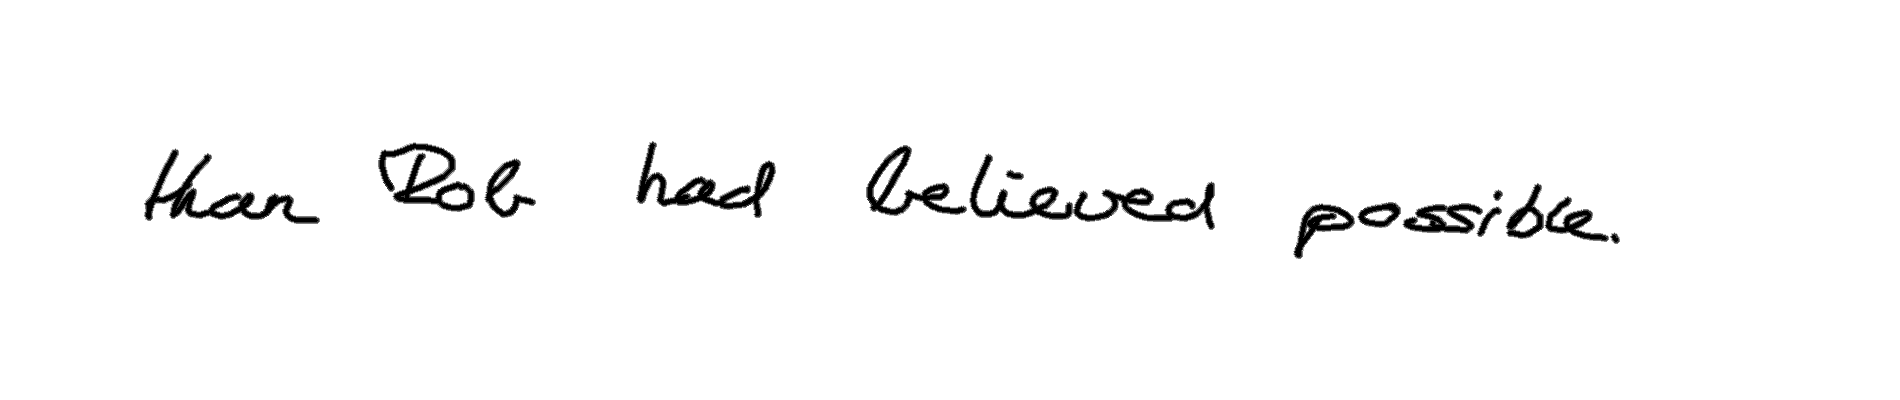 than Rob had believed possible.